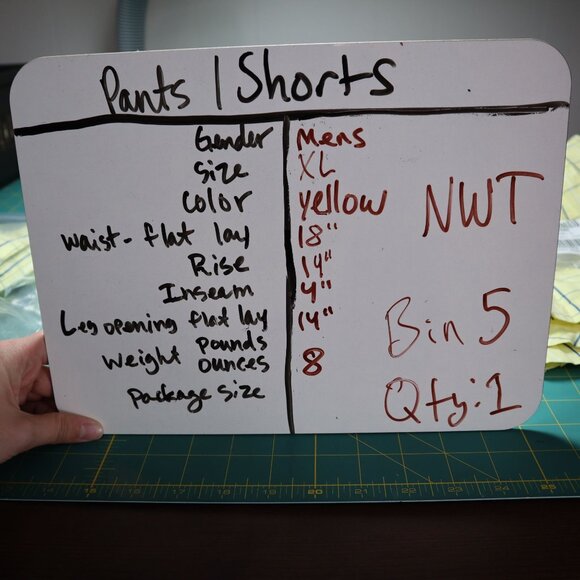 Pants | Shorts
Gender Mens
Size XL
Color yellow
NWT
waist- flat lay 18"
Rise 14"
Inseam 4"
Leg opening flat lay 14"
Bin 5
Weight pounds
ounces 8
package size
Qty: 1
14 15 16 17 18 19 20 21 22 23 24 25